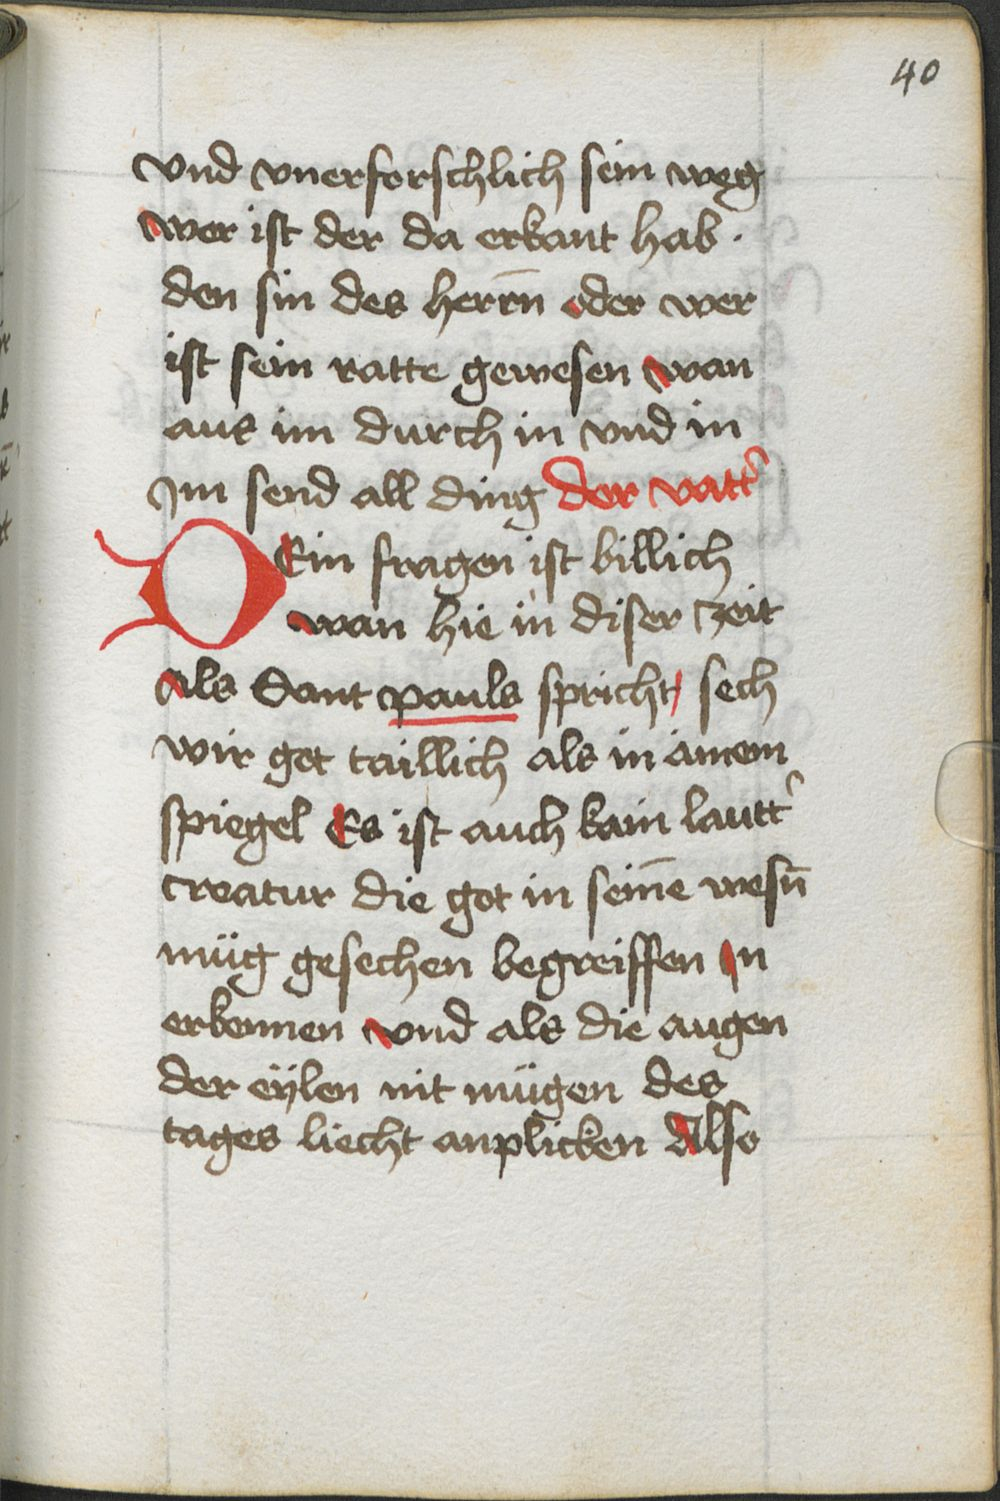 40
vnd vnerforschlich sein weg
wer ist der da erkant hab .
den sin des herrn̄ oder wer
ist sein ratte gewesen wan
aus im durch in vnd in
Jm send all ding der vatt᾽
DEin fragen ist billich
wan hie in diser zeit
Als Sant pauls spricht / sech
wir got taillich als in ainem
spiegel Es ist auch kain lautt᾽
creatur die got in seinē wesn̄
müg gesechen begreiffen Jn
erkennen vnd als die augen
der eÿlen nit mügen des
tages liecht anplicken Also